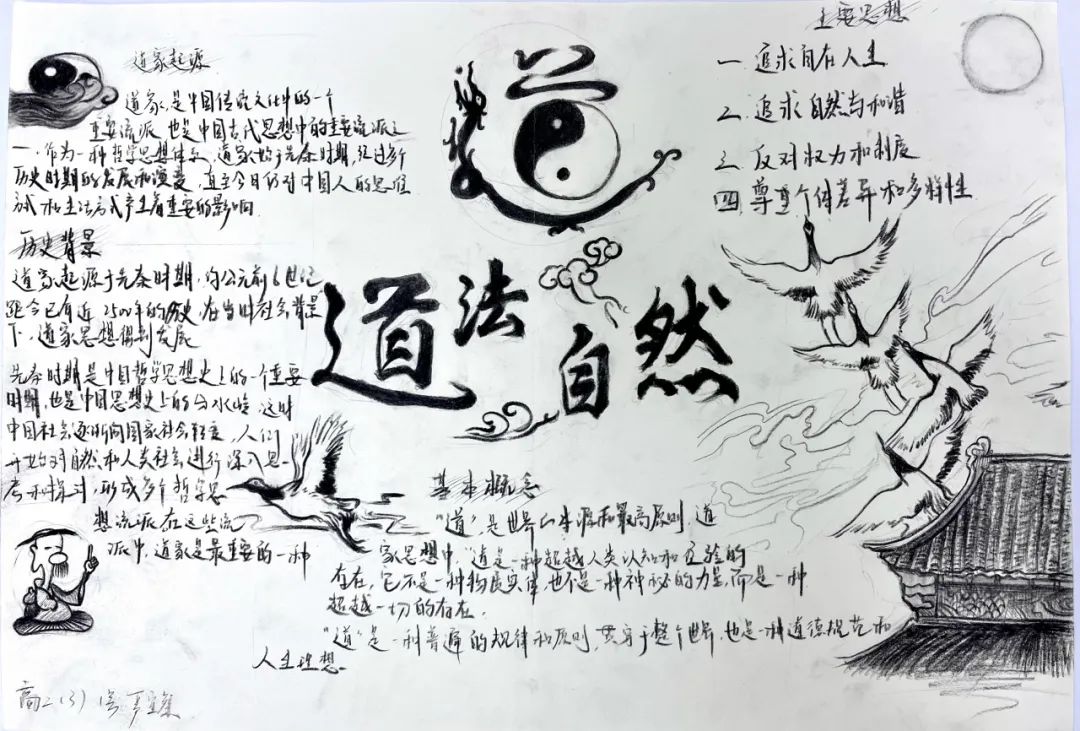 道家起源
道家，是中国传统文化中的一个
重要流派，也是中国古代思想中的重要流派之
一，作为一种哲学思想体系，道家始于先秦时期，经过多个
历史时期的发展和演变，直至今日仍对中国人的思维
方式和生活方式产生着重要的影响
历史背景
道家起源于先秦时期，约公元前6世纪
距今已有近2500年的历史，在当时社会背景
下，道家思想得到发展
先秦时期是中国哲学思想史上的一个重要
时期，也是中国思想史上的分水岭，这时
中国社会逐渐向国家社会转变，人们
开始对自然和人类社会进行深入思
考和探讨，形成多个哲学思
想流派，在这些流
派中，道家是最重要的一种
道
道法自然
主要思想
一 追求自在人生
二 追求自然与和谐
三 反对权力和制度
四 尊重个体差异和多样性
基本概念
“道”，是世界的本源和最高原则，道
家思想中，道是一种超越人类认知和经验的
存在，它不是一种物质实体，也不是一种神秘的力量，而是一种
超越一切的存在，
“道”是一种普遍的规律和原则，贯穿于整个世界，也是一种道德规范和
人生理想。
高二（3）